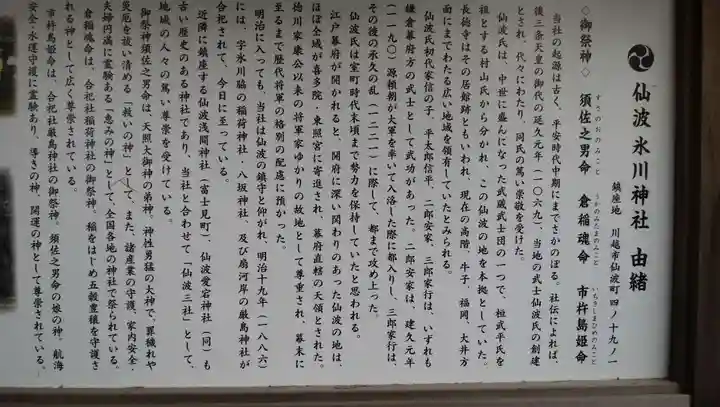 仙波氷川神社 由緒
鎮座地 川越市仙波町四ノ十九ノ一
◇御祭神◇ 須佐之男命 倉稲魂命 市杵島姫命
すさのおのみこと うかのみたまのみこと いちきしまひめのみこと
当社の起源は古く、平安時代中期にまでさかのぼる。社伝によれば、
後三条天皇の御代の延久元年(一〇六九)、当地の武士仙波氏の創建
とされ、代々にわたり、同氏の篤い崇敬を受けた。
仙波氏は、中世に盛んになった武蔵武士団の一つで、桓武平氏を
祖とする村山氏から分かれ、この仙波の地を本拠としていた。
長徳寺はその居館跡ともいわれ、現在の高階、牛子、福岡、大井方
面にまでわたる広い地域を領有していたとみられる。
仙波氏初代家信の子、平太郎信平、二郎安家、三郎家行は、いずれも
鎌倉幕府方の武士として武功があった。二郎安家は、建久元年
(一一九〇)源頼朝が大軍を率いて入洛した際に都入りし、三郎家行は、
その後の承久の乱(一二二一)に際して、都まで攻め上った。
仙波氏は室町時代末頃まで勢力を保持していたと思われる。
江戸幕府が開かれると、開府に深い関わりのあった仙波の地は、
ほぼ全域が喜多院、東照宮に寄進され、幕府直轄の天領とされた。
徳川家康公以来の将軍家ゆかりの故地として尊重され、幕末に
至るまで歴代将軍の格別の配慮に預かった。
明治に入っても、当社は仙波の鎮守と仰がれ、明治十九年(一八八六)
には、字氷川脇の稲荷神社、八坂神社、及び扇河岸の厳島神社が
合祀されて、今日に至っている。
近隣に鎮座する仙波浅間神社(富士見町)、仙波愛宕神社(同)も
古い歴史のある神社であり、当社と合わせて「仙波三社」として、
地域の人々の篤い尊崇を受けている。
御祭神須佐之男命は、天照大御神の弟神。神性勇猛の大神で、罪穢れや
災厄を祓い清める「救いの神」として、また、諸産業の守護、家内安全・
夫婦円満に霊験ある「恵みの神」として、全国各地の神社で祭られている。
倉稲魂命は、合祀社稲荷神社の御祭神。稲をはじめ五穀豊穣を守護さ
れる神として広く尊崇されている。
市杵島姫命は、合祀社厳島神社の御祭神。須佐之男命の娘の神。航海
安全・水運守護に霊験あり、導きの神、開運の神として尊崇されている。